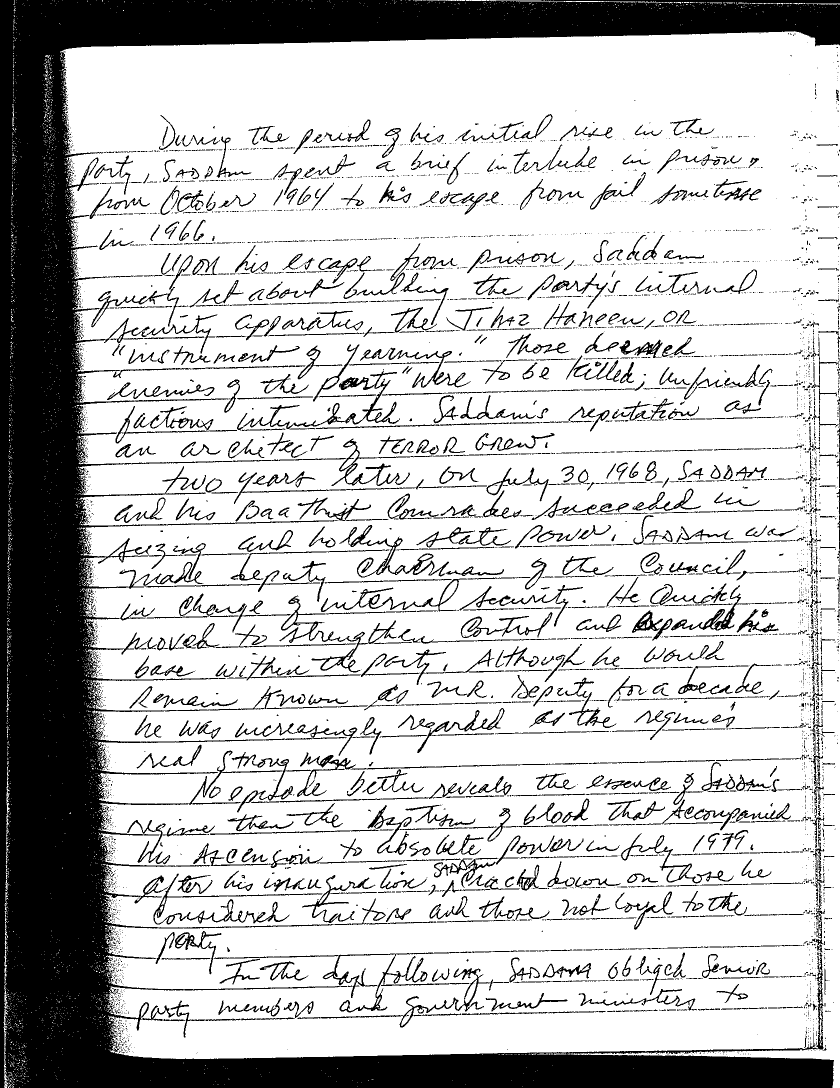 During the period of his initial rise in the
party, SADDAM spent a brief interlude in prison,
from October 1964 to his escape from jail sometime
in 1966.
Upon his escape from prison, Saddam
quickly set about building the party's internal
security apparatus, the JIHAZ HANEEN, OR
"instrument of yearning." Those deemed
"enemies of the party" were to be killed; unfriendly
factions intimidated. SADDAM's reputation as
an architect of TERROR GREW.
Two years later, on July 30, 1968, SADDAM
and his Baathist Comrades succeeded in
seizing and holding state power. SADDAM was
made deputy Chairman of the Council,
in charge of internal security. He Quickly
moved to strengthen Control and expanded his
base within the party. Although he would
Remain Known as MR. Deputy for a decade,
he was increasingly regarded as the regime's
real strong man.
No episode better reveals the essence of SADDAM's
regime than the baptism of blood that Accompanied
his Ascension to absolute power in July 1979.
After his inauguration, SADDAM cracked down on those he
considered traitors and those not loyal to the
party.
In the days following, SADDAM obliged Senior
party members and government ministers to